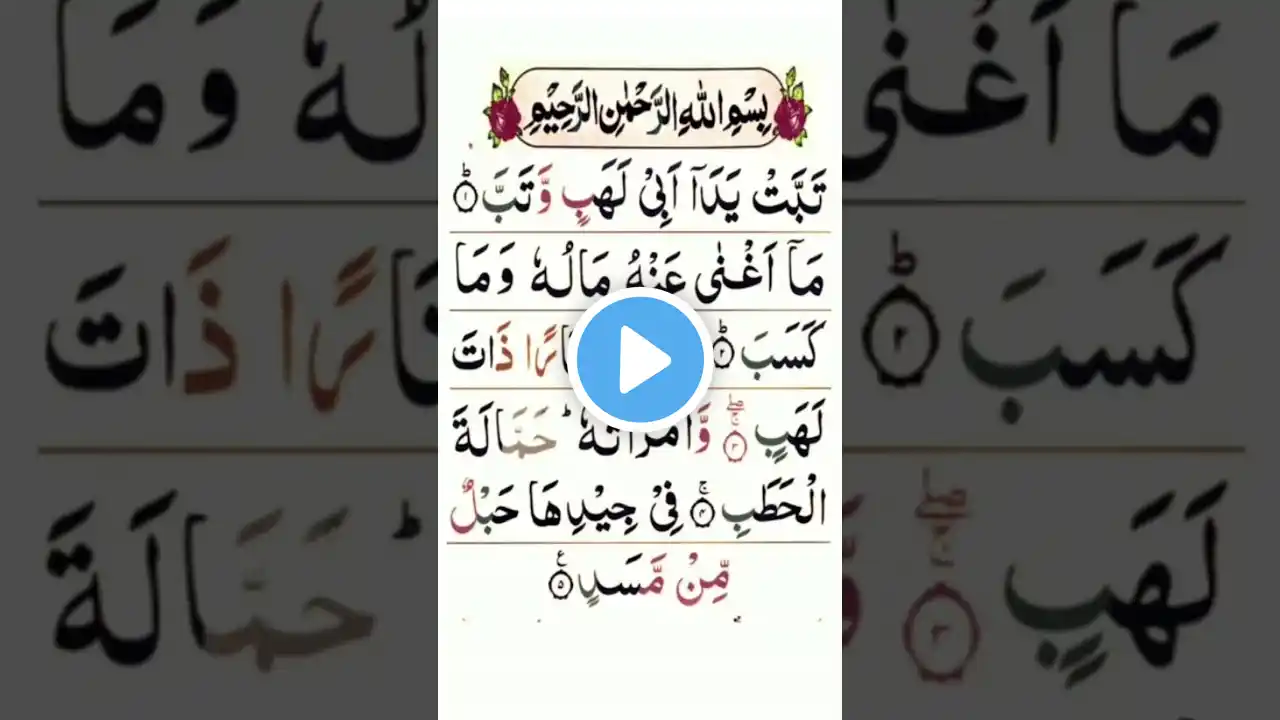 بِسْمِ اللّٰهِ الرَّحْمٰنِ الرَّحِيْمِ
تَبَّتْ يَدَاۤ اَبِيْ لَهَبٍ وَّتَبَّ ؕ۱
مَاۤ اَغْنٰى عَنْهُ مَالُهٗ وَمَا
كَسَبَ ؕ۲ نَارًا ذَاتَ
لَهَبٍ ۚۖ۳ وَّامْرَاَتُهٗ ؕ حَمَّالَةَ
الْحَطَبِ ۚ۴ فِيْ جِيْدِهَا حَبْلٌ
مِّنْ مَّسَدٍ ۠۵